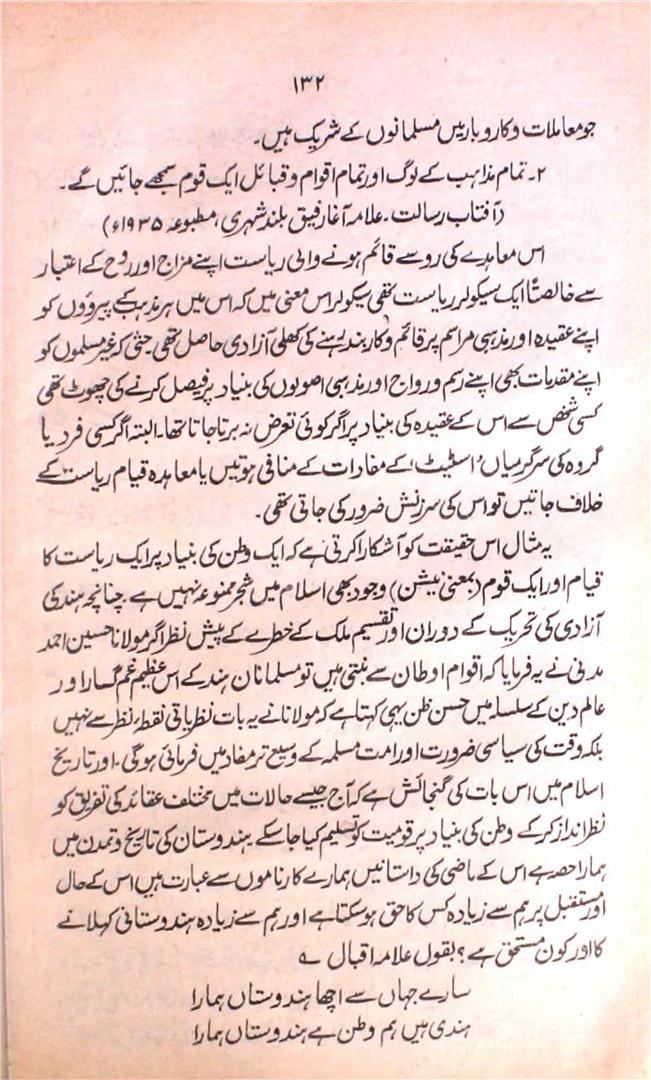 ۱۳۲
جو معاملات و کاروبار میں مسلمانوں کے شریک ہیں۔
۲۔ تمام مذاہب کے لوگ اور تمام اقوام و قبائل ایک قوم سمجھے جائیں گے۔
(آفتاب رسالت۔ علامہ آغا رفیق بلند شہری، مطبوعہ ۱۹۳۵ء)
اس معاہدے کی رو سے قائم ہونے والی ریاست اپنے مزاج اور روح کے اعتبار
سے خالصتاً ایک سیکولر ریاست تھی سیکولر اس معنی میں کہ اس میں ہر مذہب کے پیروؤں کو
اپنے عقیدہ اور مذہبی مراسم پر قائم و کاربند رہنے کی کھلی آزادی حاصل تھی حتیٰ کہ غیر مسلموں کو
اپنے مقدمات بھی اپنے رسم و رواج اور مذہبی اصولوں کی بنیاد پر فیصل کرنے کی چھوٹ تھی
کسی شخص سے اس کے عقیدہ کی بنیاد پر اگر کوئی تعرض نہ برتا جاتا تھا۔ البتہ اگر کسی فرد یا
گروہ کی سرگرمیاں 'اسٹیٹ' کے مفادات کے منافی ہوتیں یا معاہدہ قیام ریاست کے
خلاف جاتیں تو اس کی سرزنش ضرور کی جاتی تھی۔
یہ مثال اس حقیقت کو آشکارا کرتی ہے کہ ایک وطن کی بنیاد پر ایک ریاست کا
قیام اور ایک قوم (بمعنی نیشن) وجود بھی اسلام میں شجر ممنوعہ نہیں ہے۔ چنانچہ ہند کی
آزادی کی تحریک کے دوران اور تقسیم ملک کے خطرے کے پیش نظر اگر مولانا حسین احمد
مدنی نے یہ فرمایا کہ اقوام اوطان سے بنتی ہیں تو مسلمانان ہند کے اس عظیم غم گسار اور
عالم دین کے سلسلہ میں حسن ظن یہی کہتا ہے کہ مولانا نے یہ بات نظریاتی نقطۂ نظر سے نہیں
بلکہ وقت کی سیاسی ضرورت اور امت مسلمہ کے وسیع تر مفاد میں فرمائی ہوگی۔ اور تاریخ
اسلام میں اس بات کی گنجائش ہے کہ آج جیسے حالات میں مختلف عقائد کی تفریق کو
نظر انداز کر کے وطن کی بنیاد پر قومیت کو تسلیم کیا جا سکے۔ ہندوستان کی تاریخ و تمدن میں
ہمارا حصہ ہے اس کے ماضی کی داستانیں ہمارے کارناموں سے عبارت ہیں اس کے حال
اور مستقبل پر ہم سے زیادہ کس کا حق ہو سکتا ہے اور ہم سے زیادہ ہندوستانی کہلانے
کا اور کون مستحق ہے؟ بقول علامہ اقبال ؎
سارے جہاں سے اچھا ہندوستاں ہمارا
ہندی ہیں ہم وطن ہے ہندوستاں ہمارا